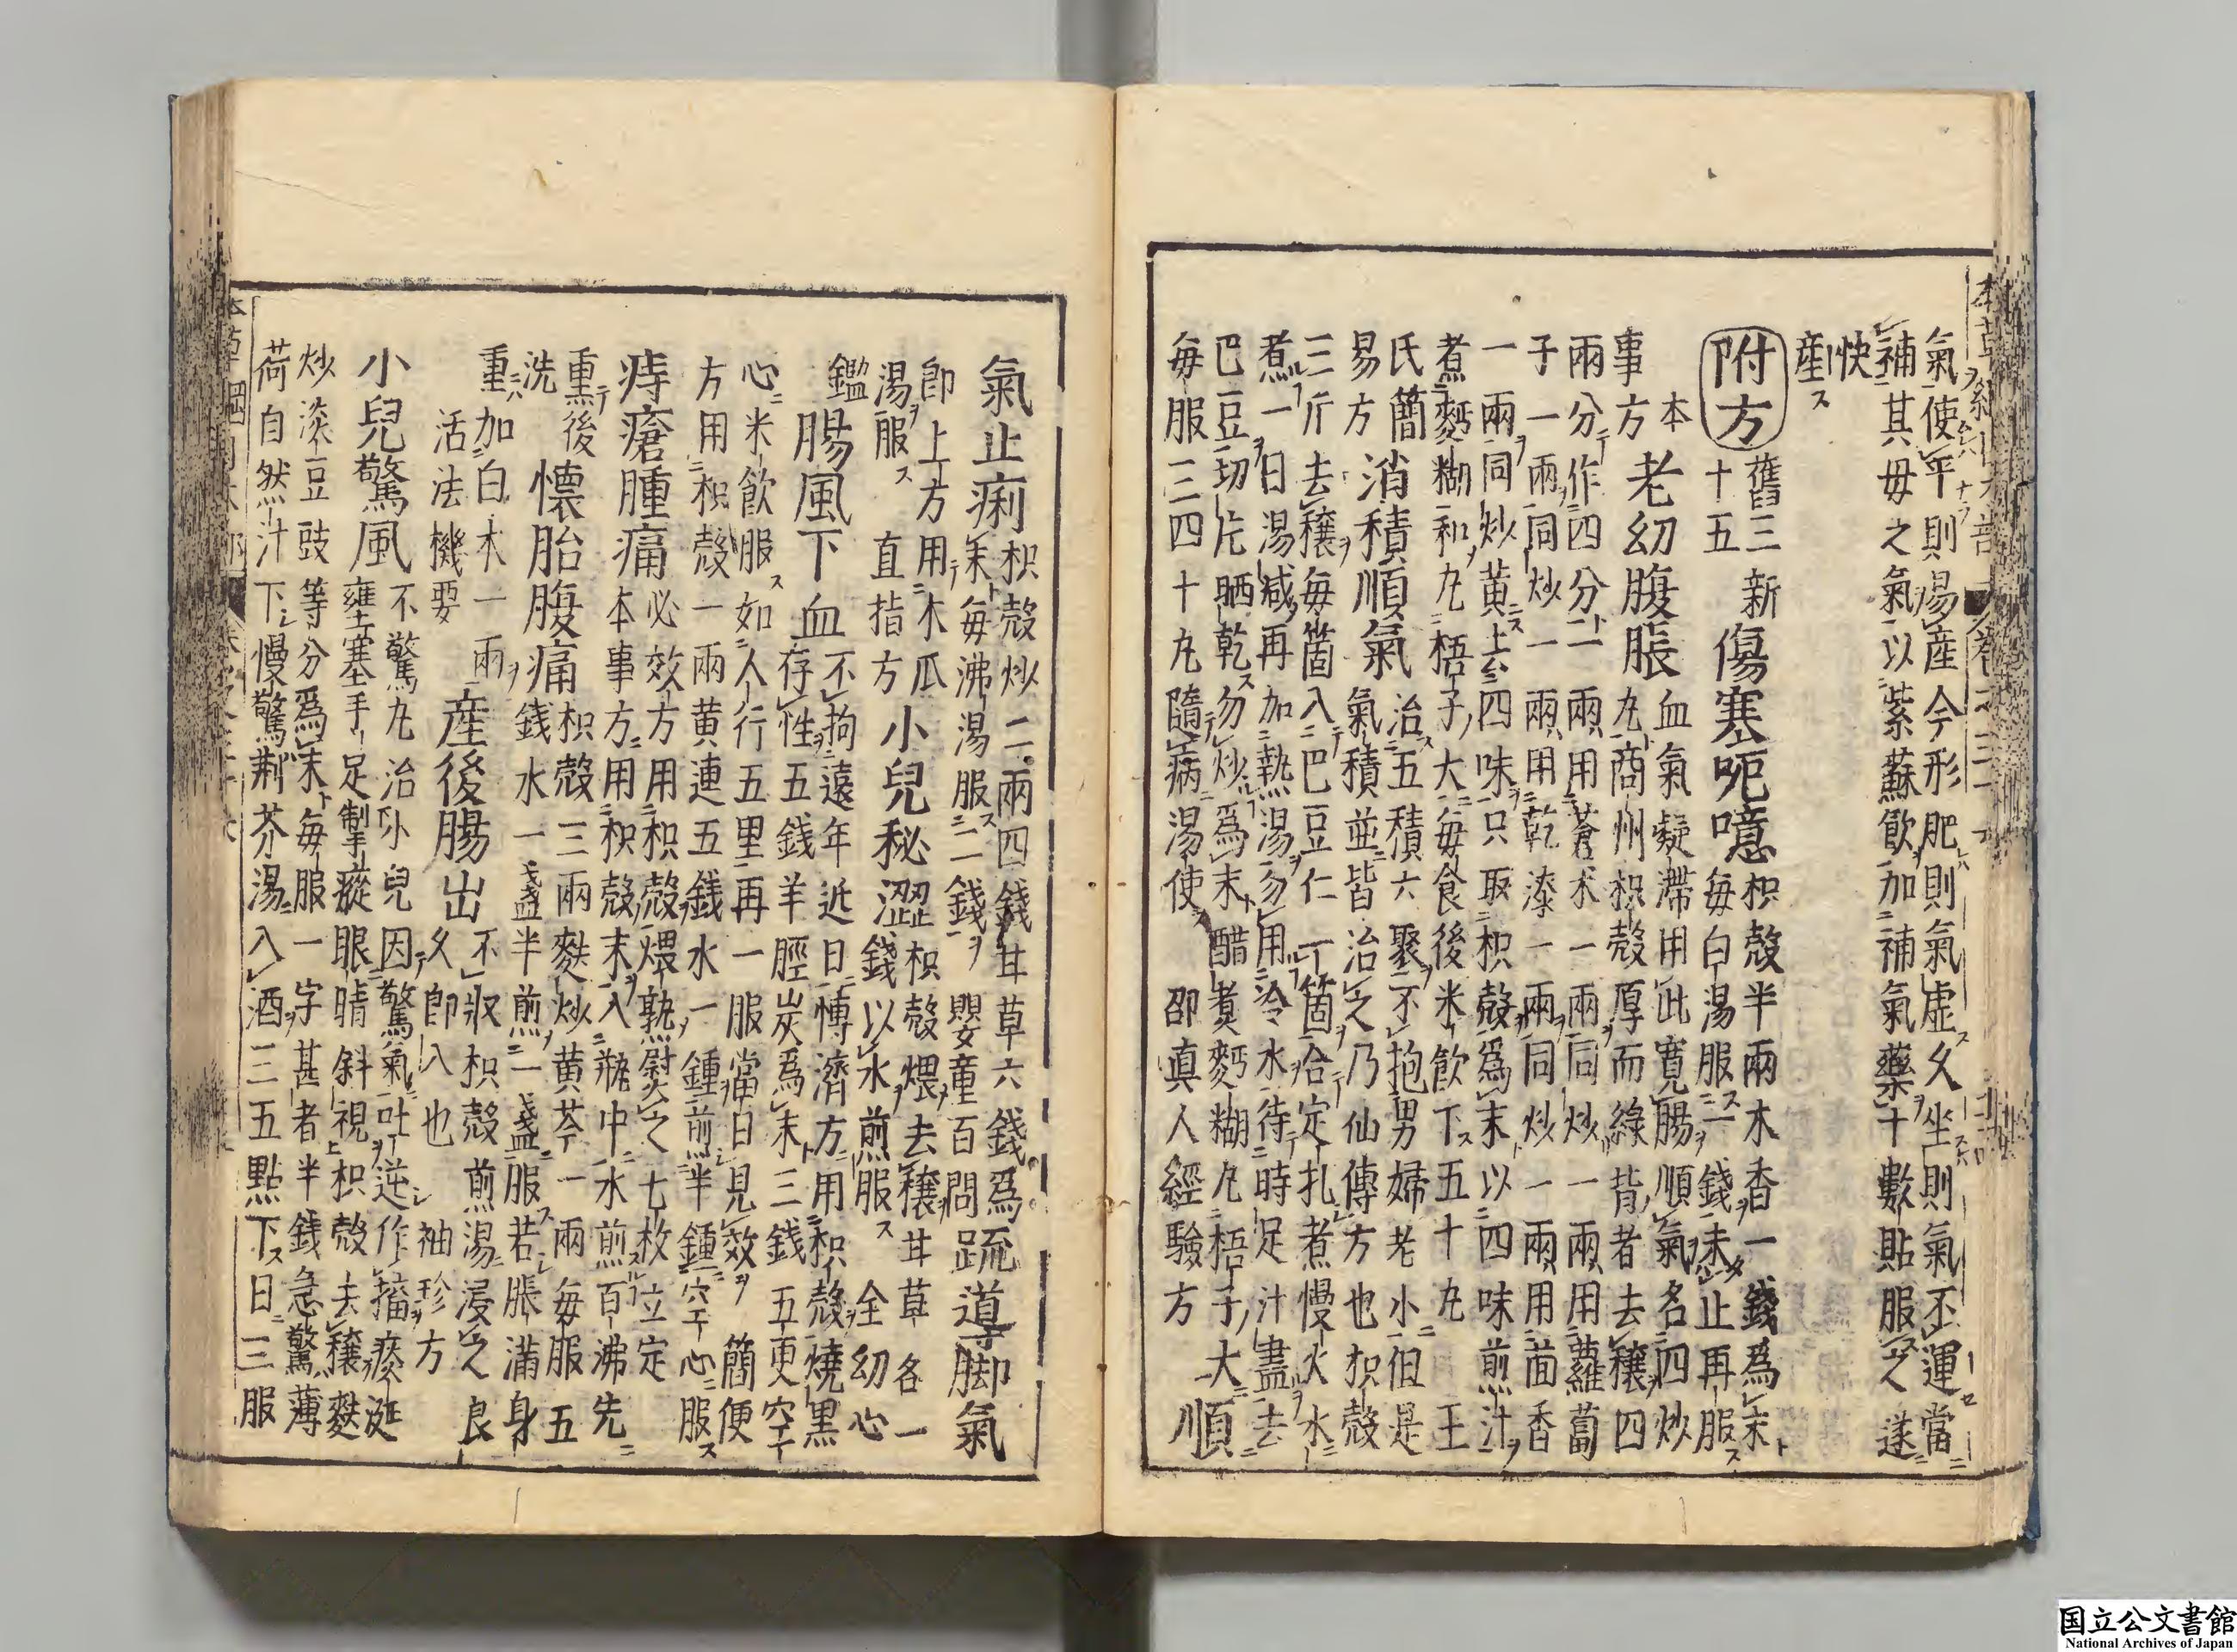 氣使平則易產今形肥則氣虛久坐則氣不運當
補其母之氣以紫蘇飲加補氣藥十數貼服之遂
快
產
附方 舊三新
十五
傷寒呃噫 枳殼半兩木香一錢爲末
每白湯服一錢未止再服
本
事方
老幼腹脹 血氣凝滯用此寬腸順氣名四炒
丸商州枳殼厚而綠背者去穰四
兩分作四分一兩用蒼朮一兩同炒一兩用蘿蔔
子一兩同炒一兩用乾漆一兩同炒一兩用茴香
一兩同炒黄去四味只取枳殼爲末以四味煎汁
煮麪糊和丸梧子大每食後米飲下五十丸 王
氏簡
易方
消積順氣 治五積六聚不拘男婦老小但是
氣積並皆治之乃仙傳方也枳殼
三斤去穰每箇入巴豆仁一箇合定扎煮慢火水
煮一日湯減再加熱湯勿用冷水待時足汁盡去
巴豆切片晒乾勿炒爲末醋煮麪糊丸梧子大
每服三四十丸隨病湯使 邵眞人經驗方
順
氣止痢 枳殼炒二兩四錢甘草六錢爲
末每沸湯服二錢 嬰童百問
疏導脚氣
即上方用木瓜
湯服 直指方
小兒秘澀 枳殼煨去穰甘草各一
錢以水煎服 全幼心
鑑
腸風下血 不拘遠年近日博濟方用枳殼燒黒
存性五錢羊脛炭爲末三錢五更空
心米飲服如人行五里再一服當日見效 簡便
方用枳殼一兩黄連五錢水一鍾煎半鍾空心服
痔瘡腫痛 必效方用枳殼煨熟熨之七枚立定
本事方用枳殼末入瓶中水煎百沸先
熏後
洗
懷胎腹痛 枳殼三兩麩炒黄芩一兩每服五
錢水一盞半煎一盞服若脹滿身
重加白朮一兩
活法機要
產後腸出 不收枳殼煎湯浸之良
久即入也 袖珍方
小兒驚風 不驚丸治小兒因驚氣吐逆作搐痰涎
壅塞手足掣瘲眼睛斜視枳殼去穰麩
炒淡豆豉等分爲末每服一字甚者半錢急驚薄
荷自然汁下慢驚荊芥湯入酒三五點下日三服
国立公文書館
National Archives of Japan